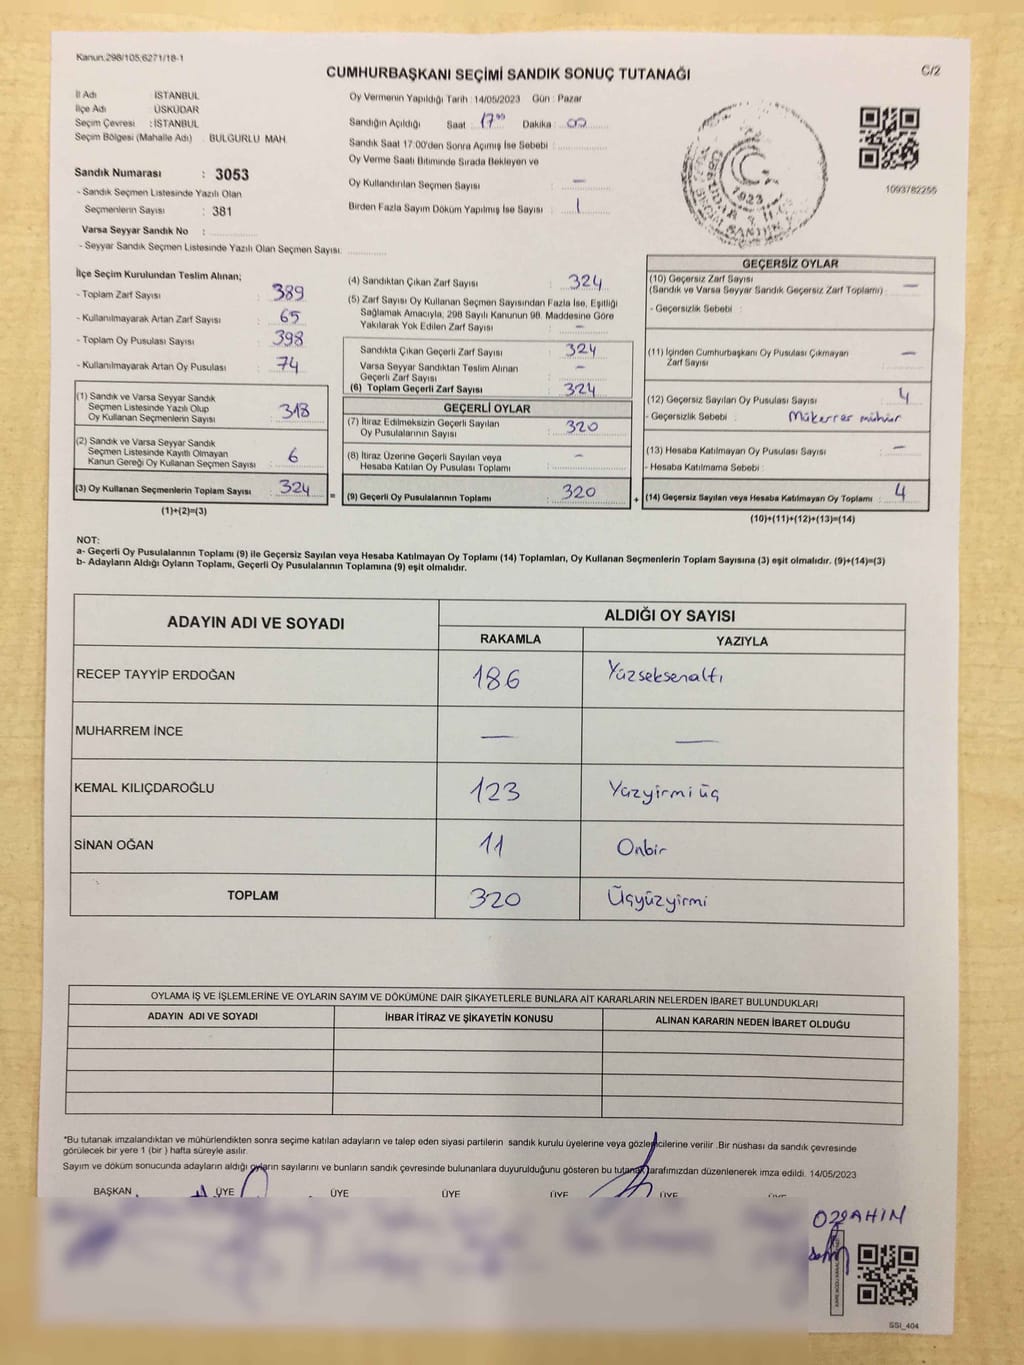 Kanun:298/105;6271/18-1
CUMHURBAŞKANI SEÇİMİ SANDIK SONUÇ TUTANAĞI
C/2
İl Adı İSTANBUL
İlçe Adı ÜSKÜDAR
Seçim Çevresi : İSTANBUL
Seçim Bölgesi (Mahalle Adı) : BULGURLU MAH.
Sandık Numarası : 3053
- Sandık Seçmen Listesinde Yazılı Olan
Seçmenlerin Sayısı : 381
Varsa Seyyar Sandık No :
- Seyyar Sandık Seçmen Listesinde Yazılı Olan Seçmen Sayısı:
Oy Vermenin Yapıldığı Tarih : 14/05/2023 Gün : Pazar
Sandığın Açıldığı Saat : 17 Dakika : 00
Sandık Saat 17:00'den Sonra Açılmış İse Sebebi :
Oy Verme Saati Bitiminde Sırada Bekleyen ve
Oy Kullandırılan Seçmen Sayısı : —
Birden Fazla Sayım Döküm Yapılmış İse Sayısı : 1
1923
1093782255
İlçe Seçim Kurulundan Teslim Alınan;
- Toplam Zarf Sayısı : 389
- Kullanılmayarak Artan Zarf Sayısı : 65
- Toplam Oy Pusulası Sayısı : 398
- Kullanılmayarak Artan Oy Pusulası : 74
(1) Sandık ve Varsa Seyyar Sandık
Seçmen Listesinde Yazılı Olup
Oy Kullanan Seçmenlerin Sayısı : 318
(2) Sandık ve Varsa Seyyar Sandık
Seçmen Listesinde Kayıtlı Olmayan
Kanun Gereği Oy Kullanan Seçmen Sayısı : 6
(3) Oy Kullanan Seçmenlerin Toplam Sayısı : 324
(1)+(2)=(3)
=
(4) Sandıktan Çıkan Zarf Sayısı : 324
(5) Zarf Sayısı Oy Kullanan Seçmen Sayısından Fazla İse, Eşitliği
Sağlamak Amacıyla, 298 Sayılı Kanunun 98. Maddesine Göre
Yakılarak Yok Edilen Zarf Sayısı : —
Sandıkta Çıkan Geçerli Zarf Sayısı : 324
Varsa Seyyar Sandıktan Teslim Alınan
Geçerli Zarf Sayısı : —
(6) Toplam Geçerli Zarf Sayısı : 324
GEÇERLİ OYLAR
(7) İtiraz Edilmeksizin Geçerli Sayılan
Oy Pusulalarının Sayısı : 320
(8) İtiraz Üzerine Geçerli Sayılan veya
Hesaba Katılan Oy Pusulası Toplamı : —
(9) Geçerli Oy Pusulalarının Toplamı : 320
+
GEÇERSİZ OYLAR
(10) Geçersiz Zarf Sayısı
(Sandık ve Varsa Seyyar Sandık Geçersiz Zarf Toplamı) : —
- Geçersizlik Sebebi :
(11) İçinden Cumhurbaşkanı Oy Pusulası Çıkmayan
Zarf Sayısı : —
(12) Geçersiz Sayılan Oy Pusulası Sayısı : 4
- Geçersizlik Sebebi : Mükerrer mühür
(13) Hesaba Katılmayan Oy Pusulası Sayısı : —
- Hesaba Katılmama Sebebi :
(14) Geçersiz Sayılan veya Hesaba Katılmayan Oy Toplamı : 4
(10)+(11)+(12)+(13)=(14)
NOT:
a- Geçerli Oy Pusulalarının Toplamı (9) ile Geçersiz Sayılan veya Hesaba Katılmayan Oy Toplamı (14) Toplamları, Oy Kullanan Seçmenlerin Toplam Sayısına (3) eşit olmalıdır. (9)+(14)=(3)
b- Adayların Aldığı Oyların Toplamı, Geçerli Oy Pusulalarının Toplamına (9) eşit olmalıdır.
ADAYIN ADI VE SOYADI ALDIĞI OY SAYISI
RAKAMLA YAZIYLA
RECEP TAYYİP ERDOĞAN 186 Yüzseksenaltı
MUHARREM İNCE — —
KEMAL KILIÇDAROĞLU 123 Yüzyirmi üç
SİNAN OĞAN 11 Onbir
TOPLAM 320 Üçyüzyirmi
OYLAMA İŞ VE İŞLEMLERİNE VE OYLARIN SAYIM VE DÖKÜMÜNE DAİR ŞİKAYETLERLE BUNLARA AİT KARARLARIN NELERDEN İBARET BULUNDUKLARI
ADAYIN ADI VE SOYADI İHBAR İTİRAZ VE ŞİKAYETİN KONUSU ALINAN KARARIN NEDEN İBARET OLDUĞU
*Bu tutanak imzalandıktan ve mühürlendikten sonra seçime katılan adayların ve talep eden siyasi partilerin sandık kurulu üyelerine veya gözlemcilerine verilir .Bir nüshası da sandık çevresinde
görülecek bir yere 1 (bir ) hafta süreyle asılır.
Sayım ve döküm sonucunda adayların aldığı oyların sayılarını ve bunların sandık çevresinde bulunanlara duyurulduğunu gösteren bu tutanak tarafımızdan düzenlenerek imza edildi. 14/05/2023
BAŞKAN ÜYE ÜYE ÜYE ÜYE ÜYE
SSI_404